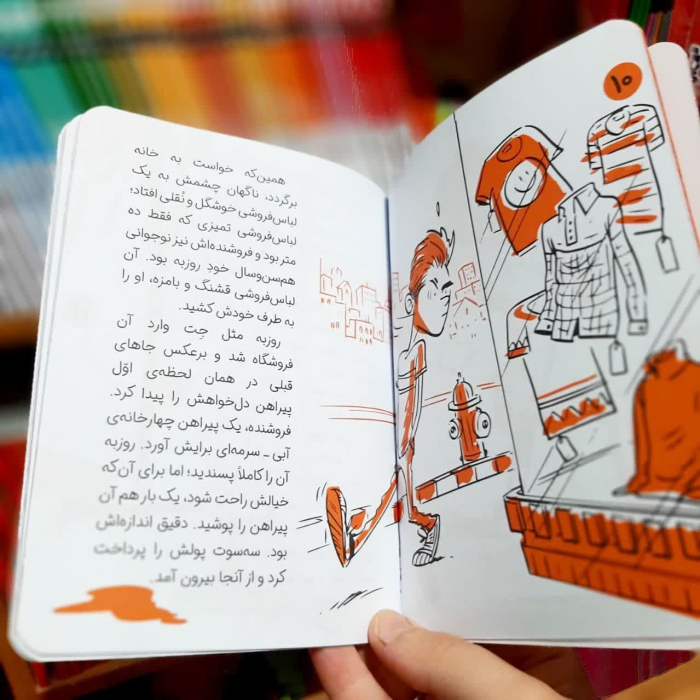 همین‌که خواست به خانه
برگردد، ناگهان چشمش به یک
لباس‌فروشی خوشگل و نُقلی افتاد؛
لباس‌فروشی تمیزی که فقط ده
متر بود و فروشنده‌اش نیز نوجوانی
هم‌سن‌وسال خودِ روزبه بود. آن
لباس‌فروشی قشنگ و بامزه، او را
به طرف خودش کشید.
روزبه مثل جِت وارد آن
فروشگاه شد و برعکس جاهای
قبلی در همان لحظه‌ی اوّل
پیراهن دل‌خواهش را پیدا کرد.
فروشنده، یک پیراهن چهارخانه‌ی
آبی ـ سرمه‌ای برایش آورد. روزبه
آن را کاملاً پسندید؛ اما برای آن‌که
خیالش راحت شود، یک بار هم آن
پیراهن را پوشید. دقیق اندازه‌اش
بود. سه‌سوت پولش را پرداخت
کرد و از آنجا بیرون آمد.
۱۰